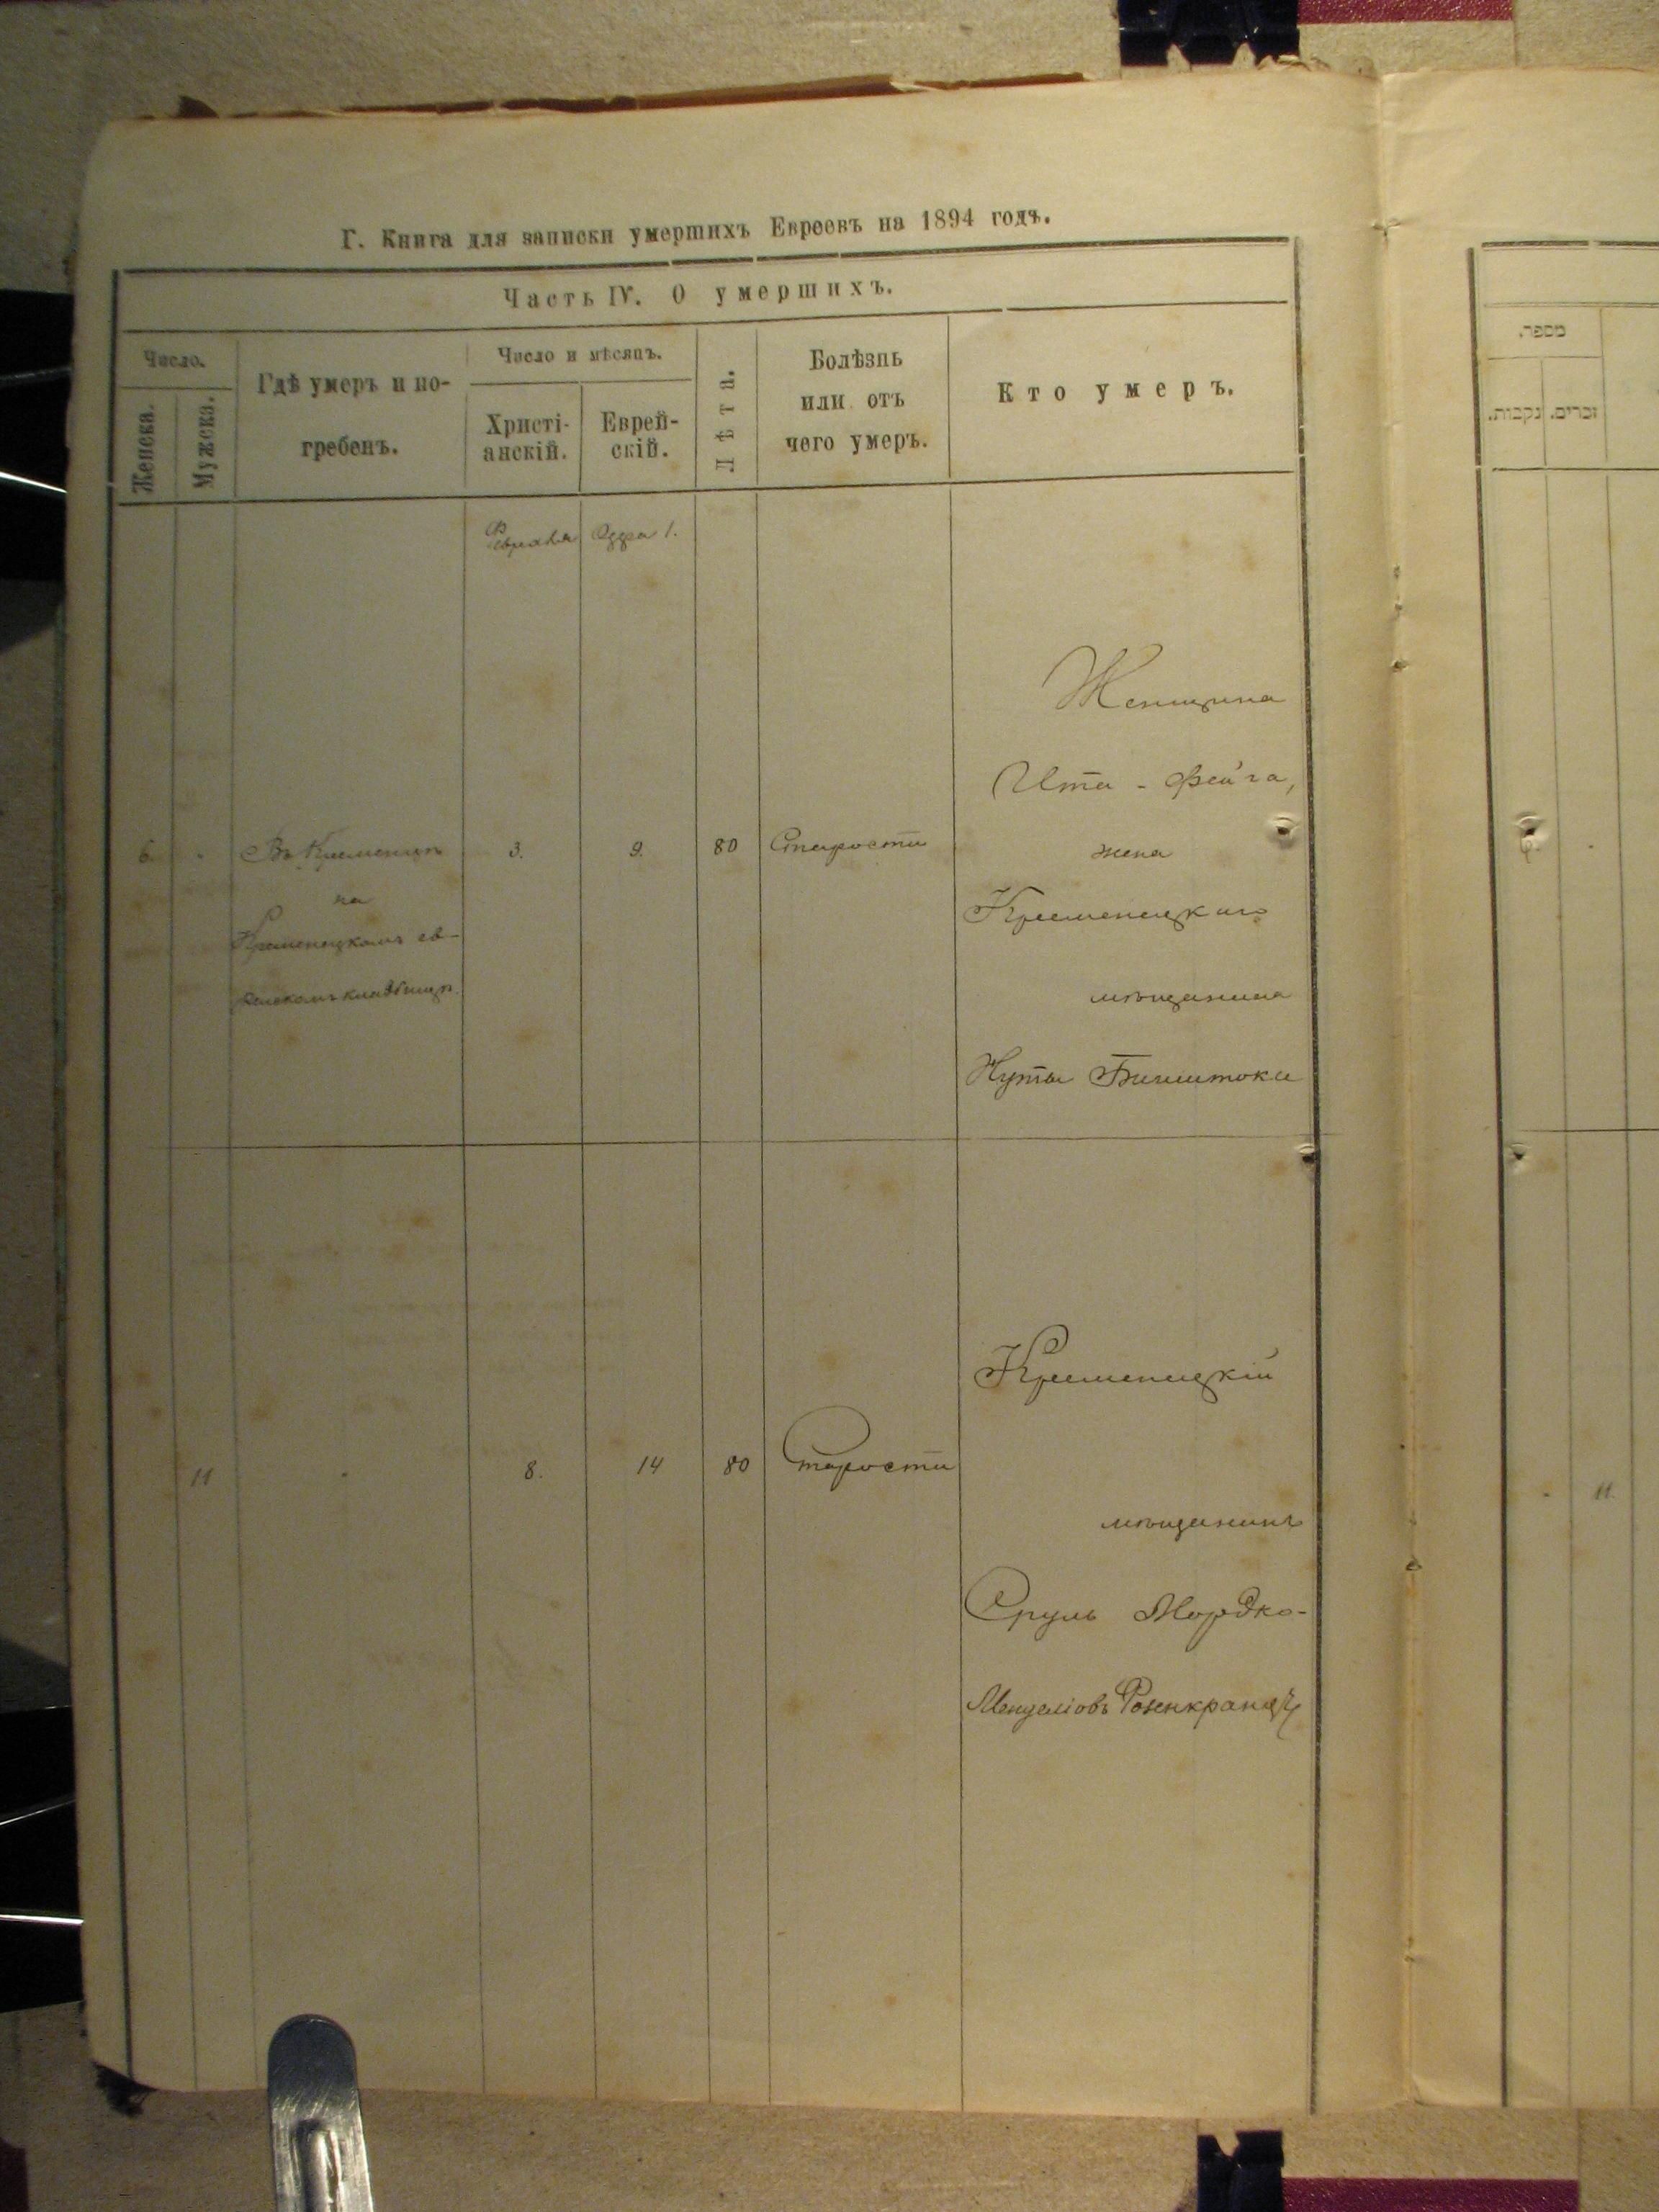 Г. Книга для записки умершихъ Евреевъ на 1894 годъ.
Часть IV. О умершихъ.
Число.
Женска.
Мужска.
Гдѣ умеръ и по-
гребенъ.
Число и мѣсяцъ.
Христі-
анскій.
Еврей-
скій.
Лѣта.
Болѣзнь
или отъ
чего умеръ.
Кто умеръ.
Февраля
Адра 1.
6.
Въ Кременцѣ
на
Кременецкомъ ев-
рейскомъ кладбищѣ.
3.
9.
80
Старости
Женщина
Ита - Фейга,
жена
Кременецкаго
мѣщанина
Нуты
11
8.
14
80
Старости
Кременецкій
мѣщанинъ
Сруль Мордко-
Менделіовъ Розенкранцъ
מספר.
נקבות.
זכרים.
6.
11.